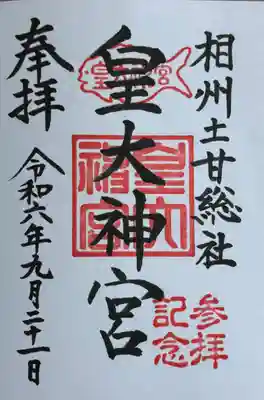 相州土甘総社
参拝
記念
皇大神宮
皇大
神宮
奉拝
令和六年九月二十一日